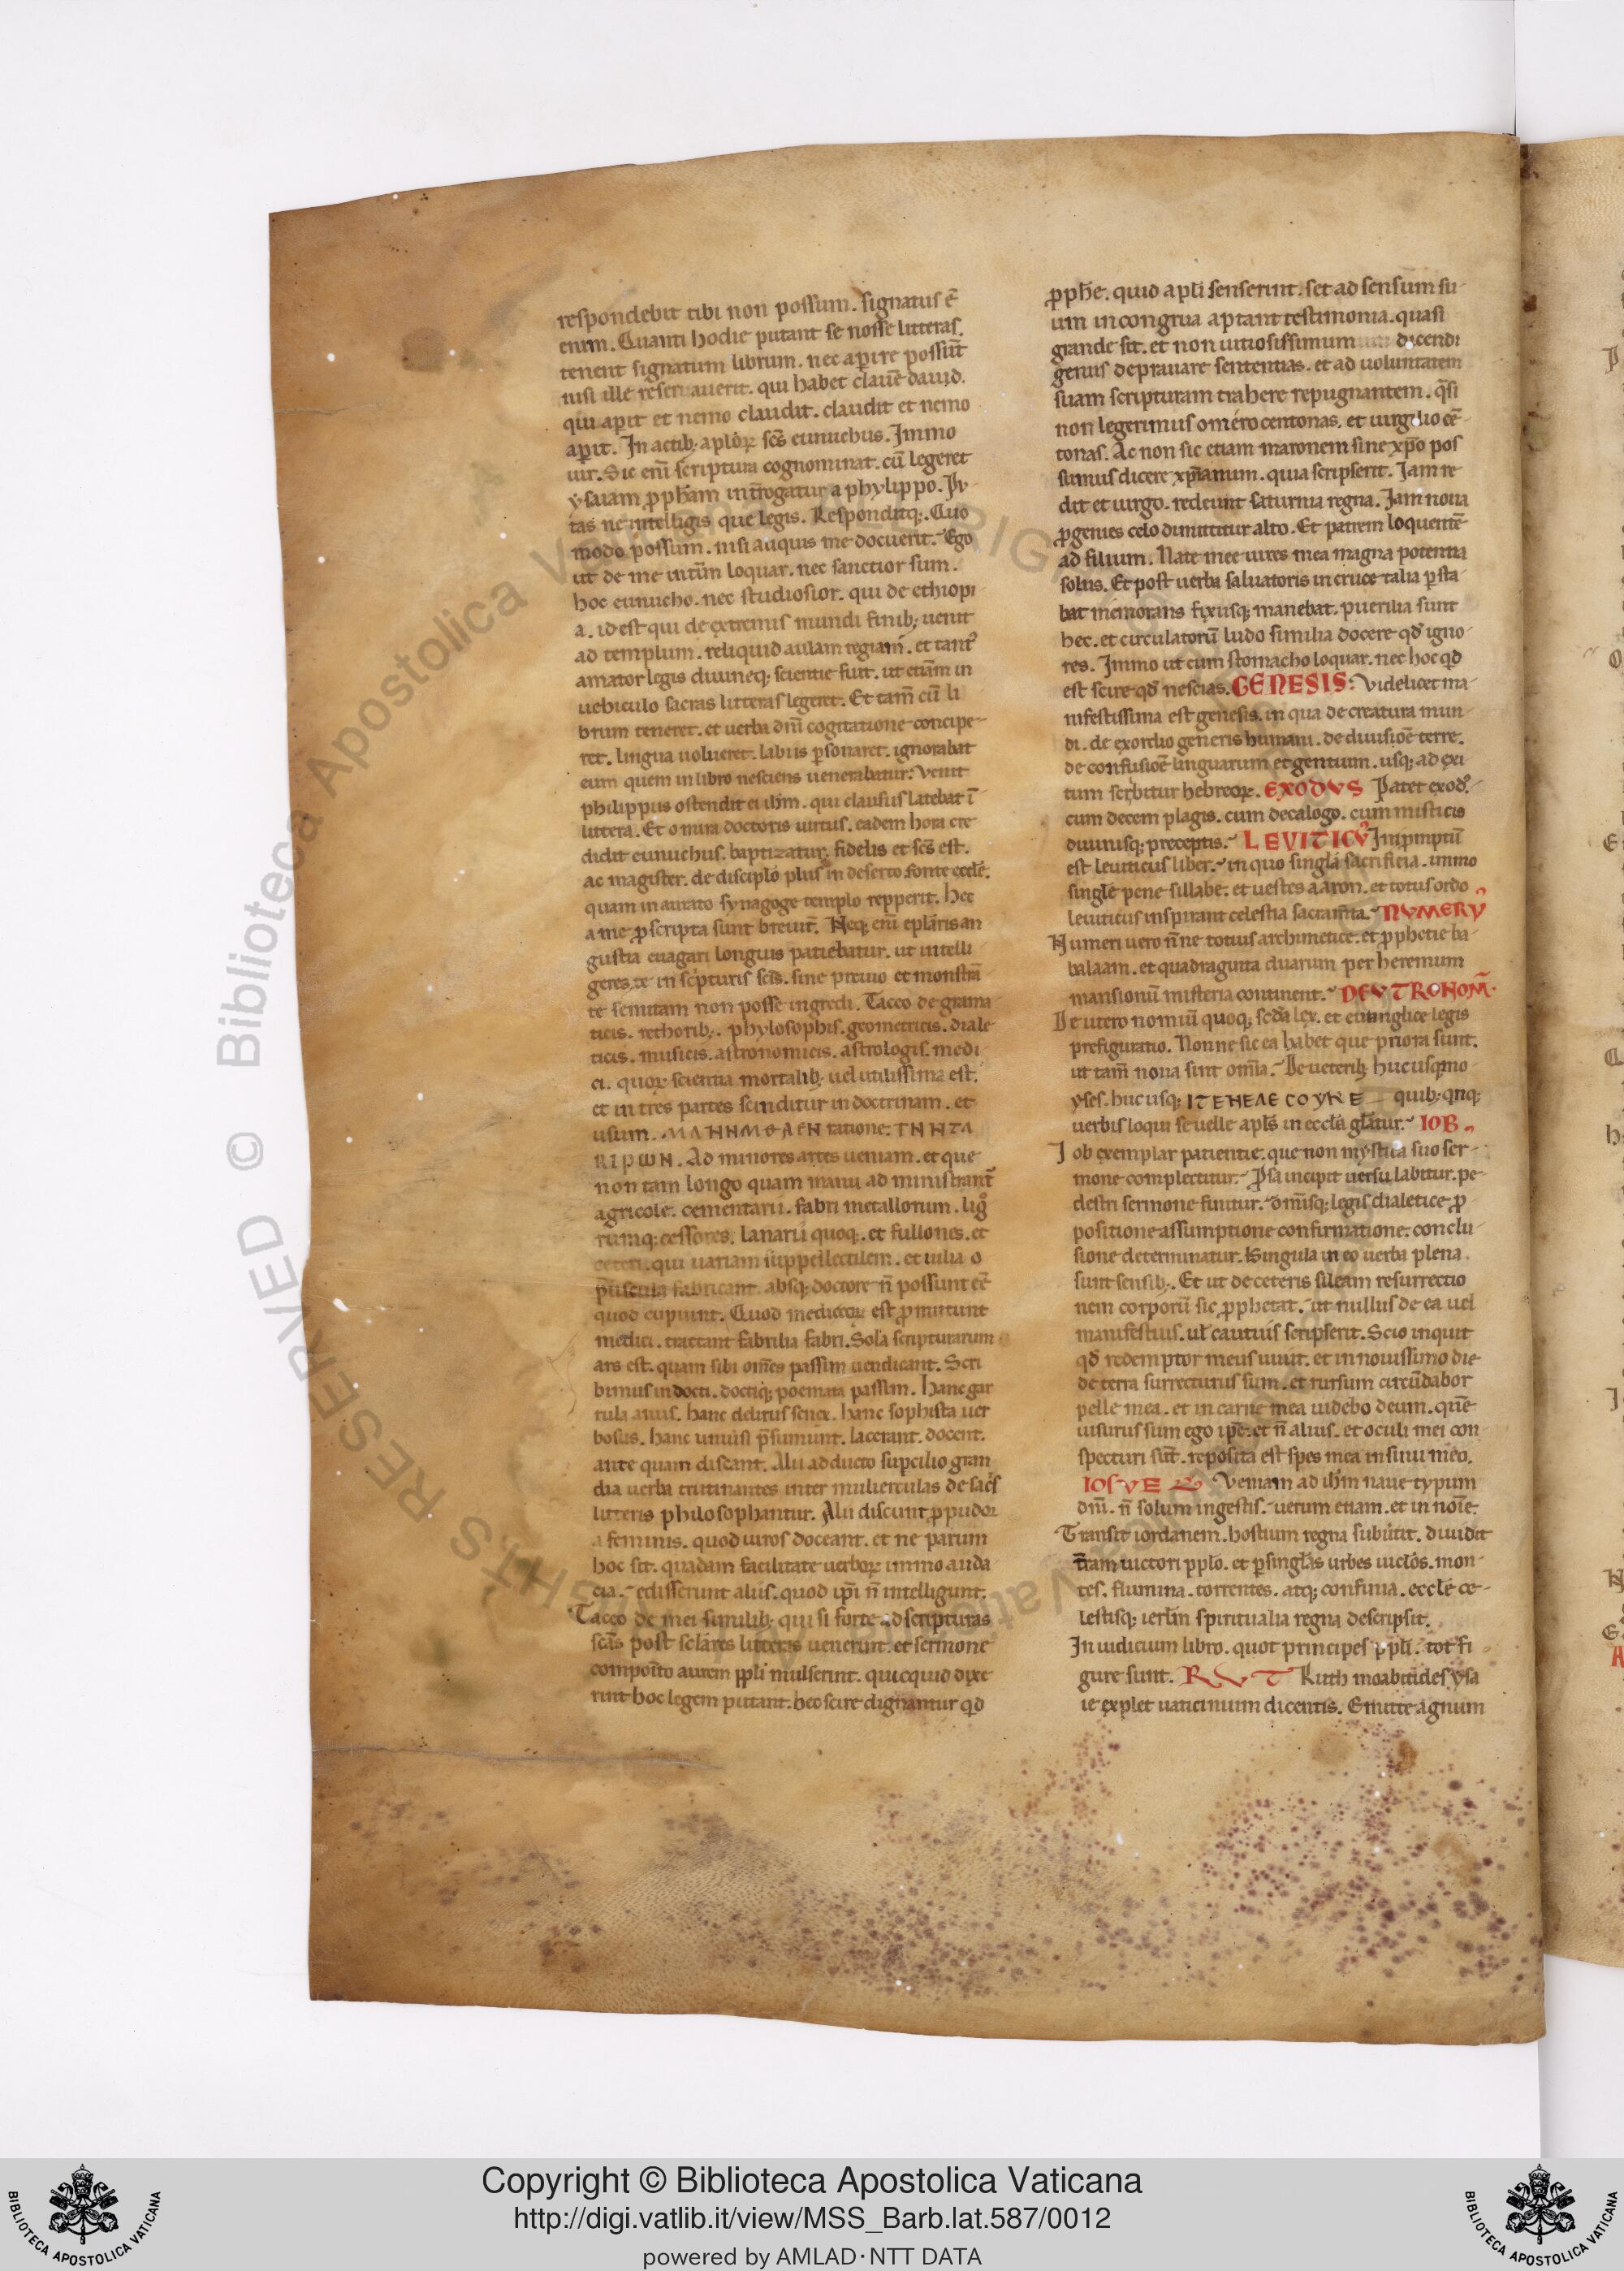 respondebit tibi non possum. signatus ē
enim. Quanti hodie putant se nosse litteras.
tenent signatum librum. nec aꝑire possūt
nisi ille reserauerit. qui habet clauē dauid.
qui aꝑit et nemo claudit. claudit et nemo
aꝑit. In actib; aplōꝝ scs̄ eunuchus. Immo
uir. Sic enī scriptura cognominat. cū legeret
ysaiam ꝓph̄am int̄rogatur a phylippo. Pu
tas ne intelligis que legis. Responditq;. Quo
modo possum. nisi aliquis me docuerit. Ego
ut de me int̄im loquar. nec sanctior sum.
hoc eunucho. nec studiosior. qui de ethiopi
a. id est qui de extremis mundi finib; uenit
ad templum. reliquid aulam regiam. et tantꝰ
amator legis diuineq; scientie fuit. ut etiām in
uehiculo sacras litteras legeret. Et tam̄ cū li
brum teneret. et uerba dn̄i cogitatione concipe
ret. lingua uolueret. labiis ꝑsonaret. ignorabat
eum quem in libro nesciens uenerabatur. Venit
philippus ostendit ei ih̄m. qui clausus latebat ī
littera. Et o mira doctoris uirtus. eadem hora cre
didit eunuchus. baptizatur. fidelis et scs̄ est.
ac magister. de discipl̄o plus in deserto fonte eccl̄e.
quam in aurato synagoge templo repperit. Hec
a me ꝑ scripta sunt breuit̄. Neq; enī epl̄aris an
gustia euagari longius patiebatur. ut intelli
geres. te in scpturis scīs. sine preuio et monstrā
te semitam non posse ingredi. Taceo de grama
ticis. rethorib;. phylosophis. geometricis. diale
ticis. musicis. astronomicis. astrologis. medi
ci. quoꝝ scientia mortalib; uel utilissima est.
et in tres partes scinditur in doctrinam. et
usum.
Ad minores artes ueniam. et que
non tam longo quam manu ad ministrant̄
agricole. cementarii. fabri metallorum. lignꝰ
rumq; cessores. lanarii quoq;. et fullones. et
ceteri. qui uariam suppellectilem. et uilia o
puscula fabricant. absq; doctore n̄ possunt eē
quod cupiunt. Quod medicoꝝ est ꝓmittunt
medici. tractant fabrilia fabri. Sola scripturarum
ars est. quam sibi om̄es passim uendicant. Scri
bimus indocti. doctiq; poemata passim. Hanc gar
rula anus. hanc delirus senex. hanc sophista uer
bosus. hanc uniuersi p̄sumunt. lacerant. docent.
ante quam discant. Alii adducto suꝑcilio gran
dia uerba trutinantes inter mulierculas de sac̄s
litteris philosophantur. Alii discunt ꝓpudor
a feminis. quod uiros doceant. et ne parum
hoc sit. quadam facilitate uerboꝝ immo auda
cia. edisserunt aliis. quod ip̄i n̄ intelligunt.
Taceo de mei similib; qui si forte ad scripturas
scās post sclāres litteris uenerint. et sermone
compoīto aurem pp̄li mulserint. quicquid dixe
rint hoc legem putant. hec scire dignantur qd̄
ꝓph̄e. quid apl̄i senserint. set ad sensum su
um incongrua aptant testimonia. quasi
grande sit. et non uitiosissimum dicendi
genus deprauare sententias. et ad uoluntatem
suam scripturam trahere repugnantem. q̄si
non legerimus omero centonas. et uirgilio cē
tonas. Ac non sic etiam maronem sine xp̄o pos
sumus dicere xp̄ianum. quia scripserit. Iam re
dit et uirgo. redeunt saturnia regna. Iam noua
ꝓgenies celo dimittitur alto. Et patrem loquentē
ad filium. Nate mee uires mea magna potentia
solus. Et post uerba saluatoris in cruce talia ꝑsta
bat memorans fixusq; manebat. puerilia sunt
hec. et circulatorū ludo similia docere qd̄ igno
res. Immo ut cum stomacho loquar. nec hoc qd̄
est scire qd̄ nescias. GENESIS: Videlicet ma
nifestissima est genesis. in qua de creatura mun
di. de exordio generis humani. de diuisioē terre.
de confusioē linguarum et gentium. usq; ad exi
tum scribitur hebreoꝝ. EXODVS Patet exodꝰ.
cum decem plagis. cum decalogo. cum misticis
diuinisq; preceptis. LEVITICꝰ In pmptū
est leuiticus liber. in quo singla sacrificia. immo
singlē pene sillabe. et uestes aaron. et totus ordo
leuiticus inspirant celestia sacram̄ta. NVMERY
Numeri uero n̄ne totius archimetice. et ꝓphetie ba
balaam. et quadraginta duarum per heremum
mansionū misteria continent. DEVTRONOM̄.
Deutero nomiū quoq; scd̄a lex. et euanglice legis
prefiguratio. Nonne sic ea habet que priora sunt.
ut tam̄ noua sint om̄ia. De ueterib; huc usq; mo
yses. huc usq; quib; qnq;
uerbis loqui se uelle apl̄s in eccl̄a gl̄atur. IOB.
Iob exemplar patientie. que non mystica suo ser
mone complectitur. Psa incipit uersu labitur. pe
destri sermone finitur. omīsq; legis dialetice ꝓ
positione assumptione confirmatione. conclu
sione determinatur. Singula in eo uerba plena
sunt sensib;. Et ut de ceteris sileam resurrectio
nem corporū sic ꝓphetat. ut nullus de ea uel
manifestius. ul̄ cautius scripserit. Scio inquit
qd̄ redemptor meus uiuit. et in nouissimo die
de terra surrecturus sum. et rursum circūdabor
pelle mea. et in carne mea uidebo deum. quē
uisurus sum ego ip̄e. et n̄ alius. et oculi mei con
specturi sūt. reposita est spes mea in sinu meo.
IOSVE Veniam ad ih̄m naue typum
dn̄i. n̄ solum in gestis. uerum etiam. et in noīe.
Transit iordanem. hostium regna subuertit. diuidit
t̄ram uictori pplo. et ꝑ singlās urbes uiclōs. mon
tes. flumina. torrentes. atq; confinia. eccl̄e ce
lestisq; ierl̄m spiritualia regna descripsit.
In iudicium libro. quot principes ppl̄i. tot fi
gure sunt. RVT Ruth moabitides ysa
ie explet uaticinium dicentis. Emitte agnum
Copyright © Biblioteca Apostolica Vaticana
http://digi.vatlib.it/view/MSS_Barb.lat.587/0012
powered by AMLAD·NTT DATA